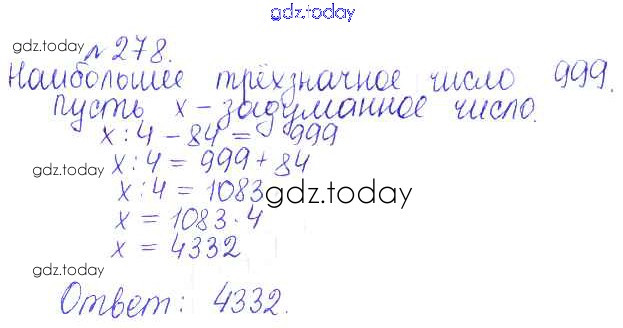 gdz.today
gdz.today
№ 278.
Наибольшее трёхзначное число 999.
пусть x - задуманное число.
x : 4 - 84 = 999
x : 4 = 999 + 84
gdz.today
x : 4 = 1083
gdz.today
x = 1083 · 4
x = 4332
gdz.today
Ответ: 4332.